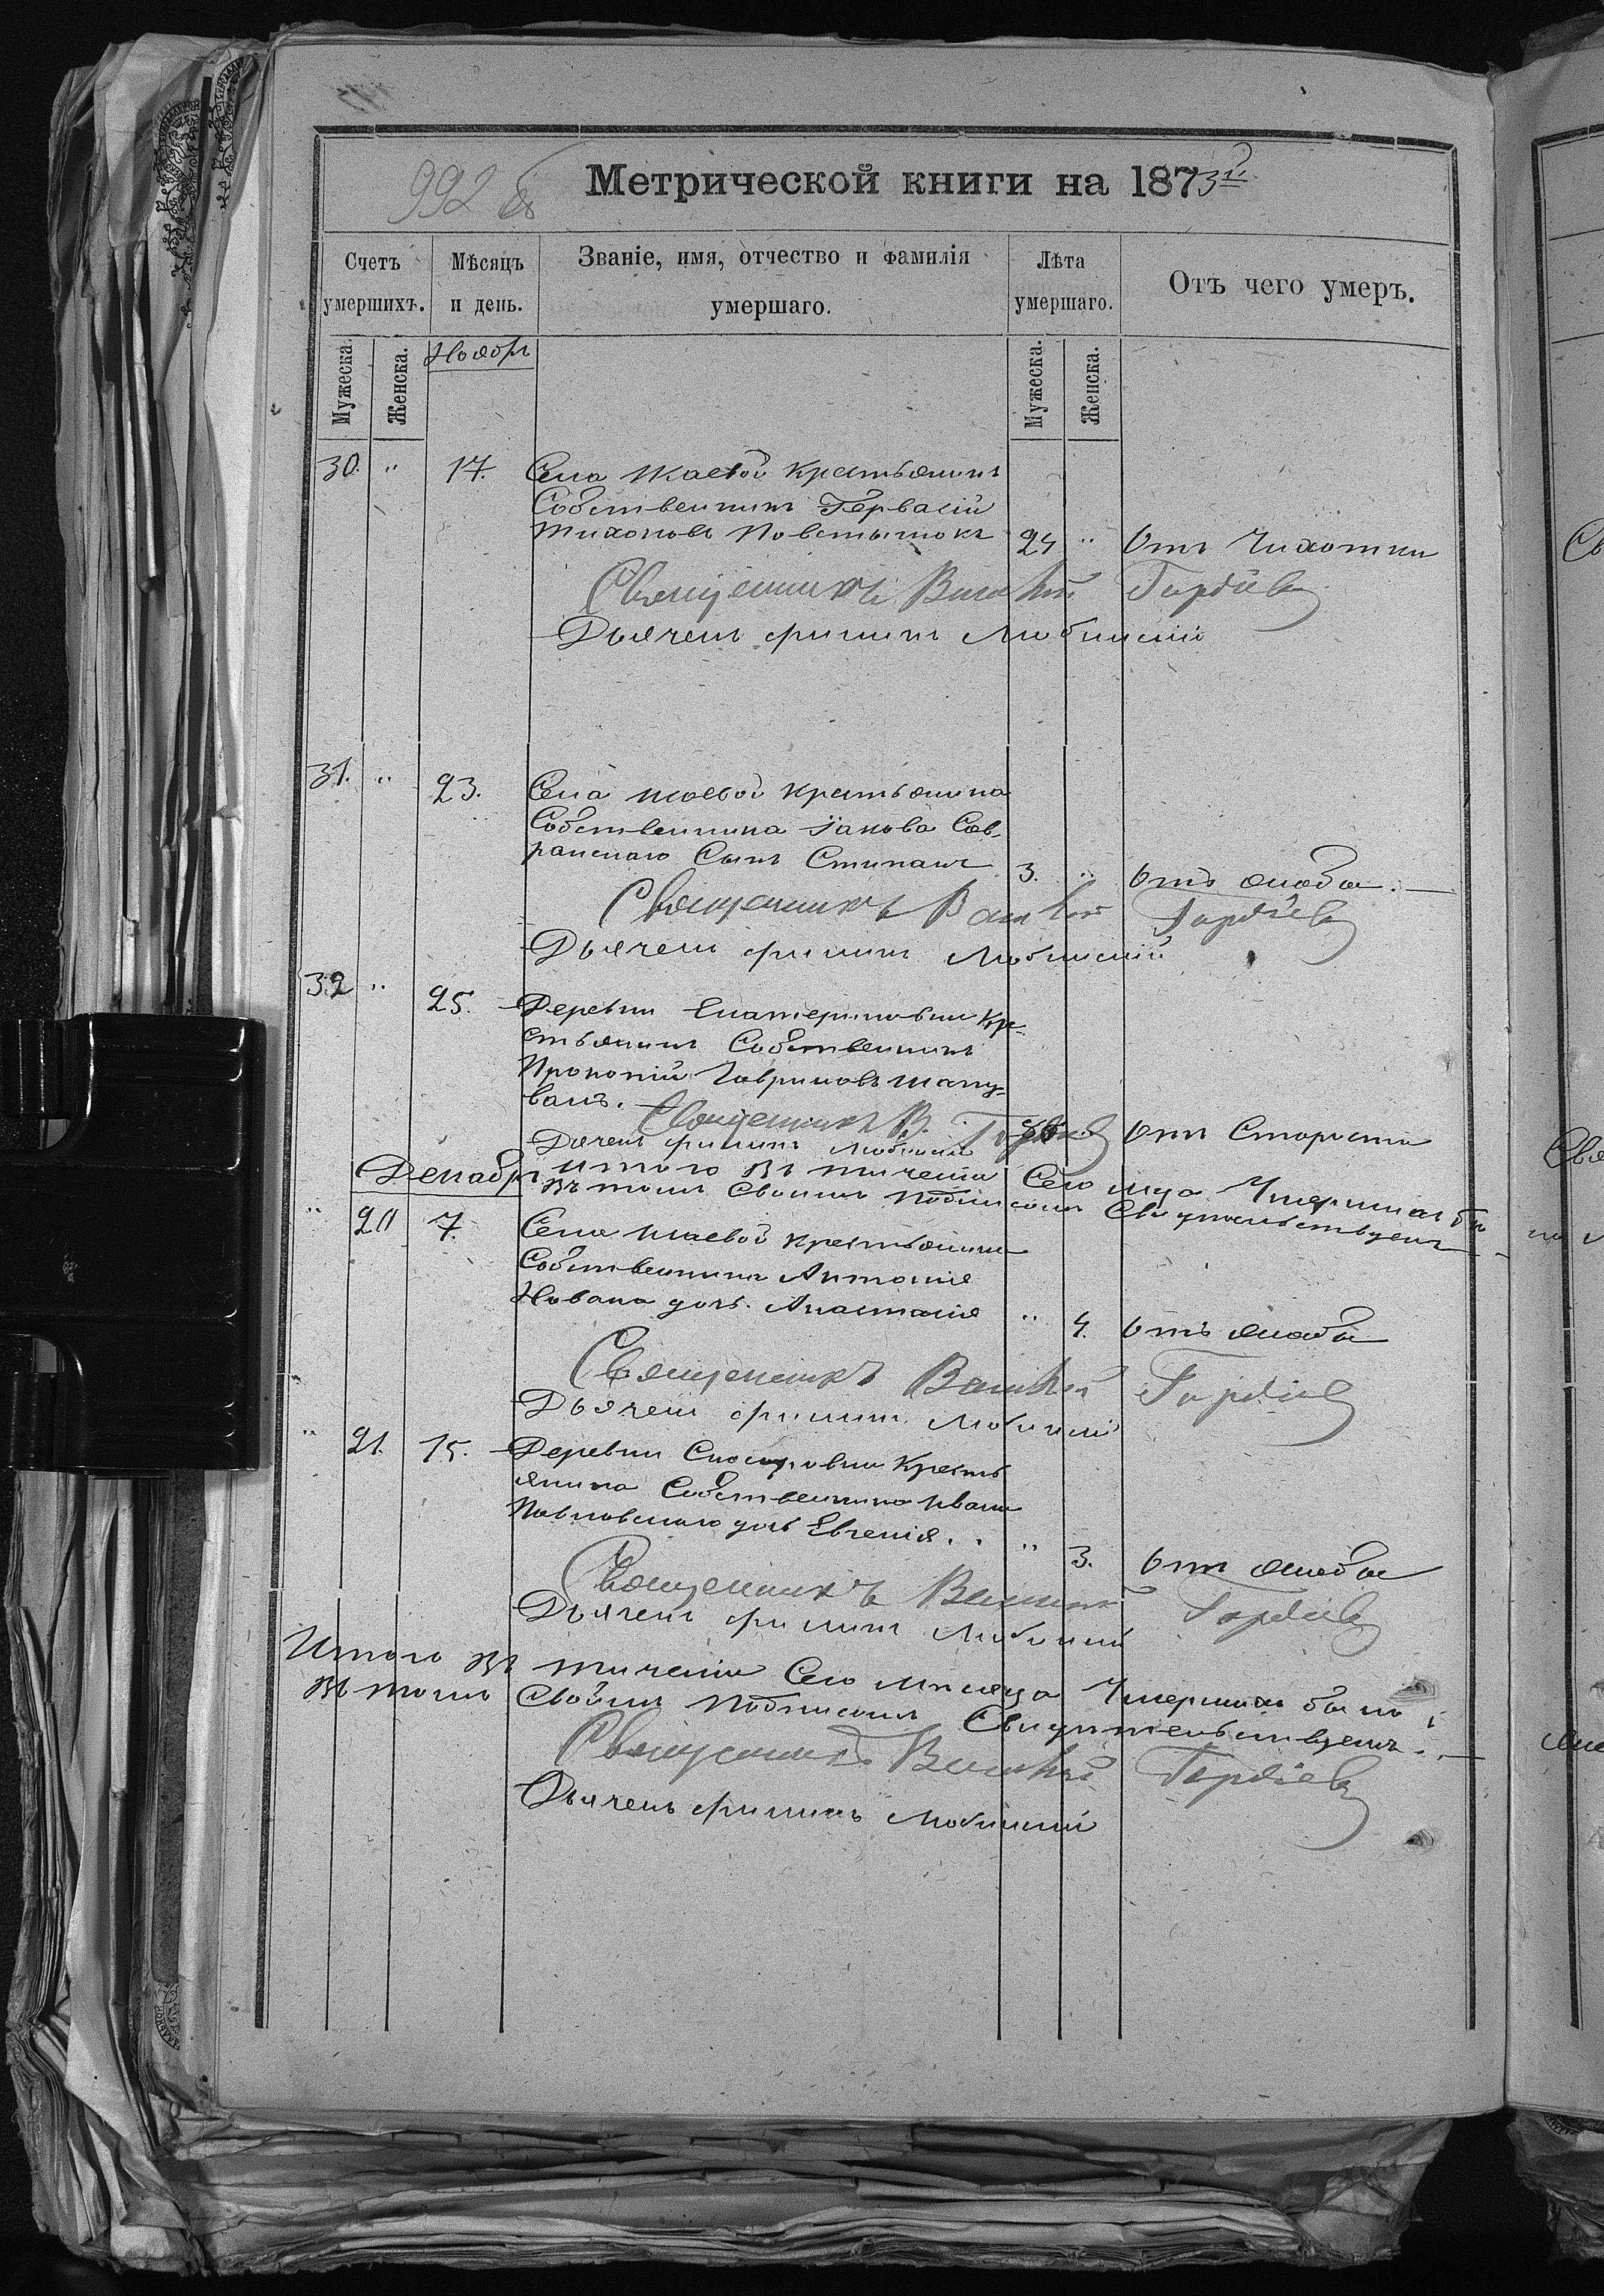 992 б
Метрической книги на 1873й
Счетъ умершихъ. Мѣсяцъ и день. Званіе, имя, отчество и фамилія умершаго. Лѣта умершаго. Отъ чего умеръ.
Мужеска. Женска. Ноябрь Мужеска. Женска.
30. " 17. Села Шаевой крестьянинъ
Собственникъ Гервасій
Тихоновъ 24 " Отъ Чихотки
Священникъ Василій Гордіевъ
Дьячекъ Филипъ Любинскій
31. " 23. Села Шаевой крестьянина
Собственника Іакова Сав-
ранскаго Сынъ Стипанъ 3. " Отъ ѡспы.—
Священникъ Василій Гордіевъ
Дьячекъ Филипъ Любинскій
32 " 25. Деревни Екатериновки Кре-
стьянинъ Собственникъ
Прокопій Гавриловъ
Священникъ В. Гордіевъ Отъ Старости
Дячекъ Филипъ Любинскій
Декабрь Итого въ тичении Сего мца Умершихъ бы
въ томъ Своимъ Подписомъ Свидѣтельствуемъ
" 20 7. Села Шаевой крестьянина
Собственника Антонія
дочь Анастасія " 4.
Священникъ Василій Гордіевъ
Дьячекъ Филипъ Любинскій
" 21. 15. Деревни Кресть
янина Собственника Ивана
Павловскаго дочь Евгенія. . " 3.
Священникъ Василій Гордіевъ
Дьячекъ Филипъ Любинскій
Итого въ тичении Сего Мѣсяца Умершихъ было
въ томъ Своимъ Подписомъ Свидѣтельствуемъ.—
Священникъ Василій Гордіевъ
Дьячекъ Филипъ Любинскій